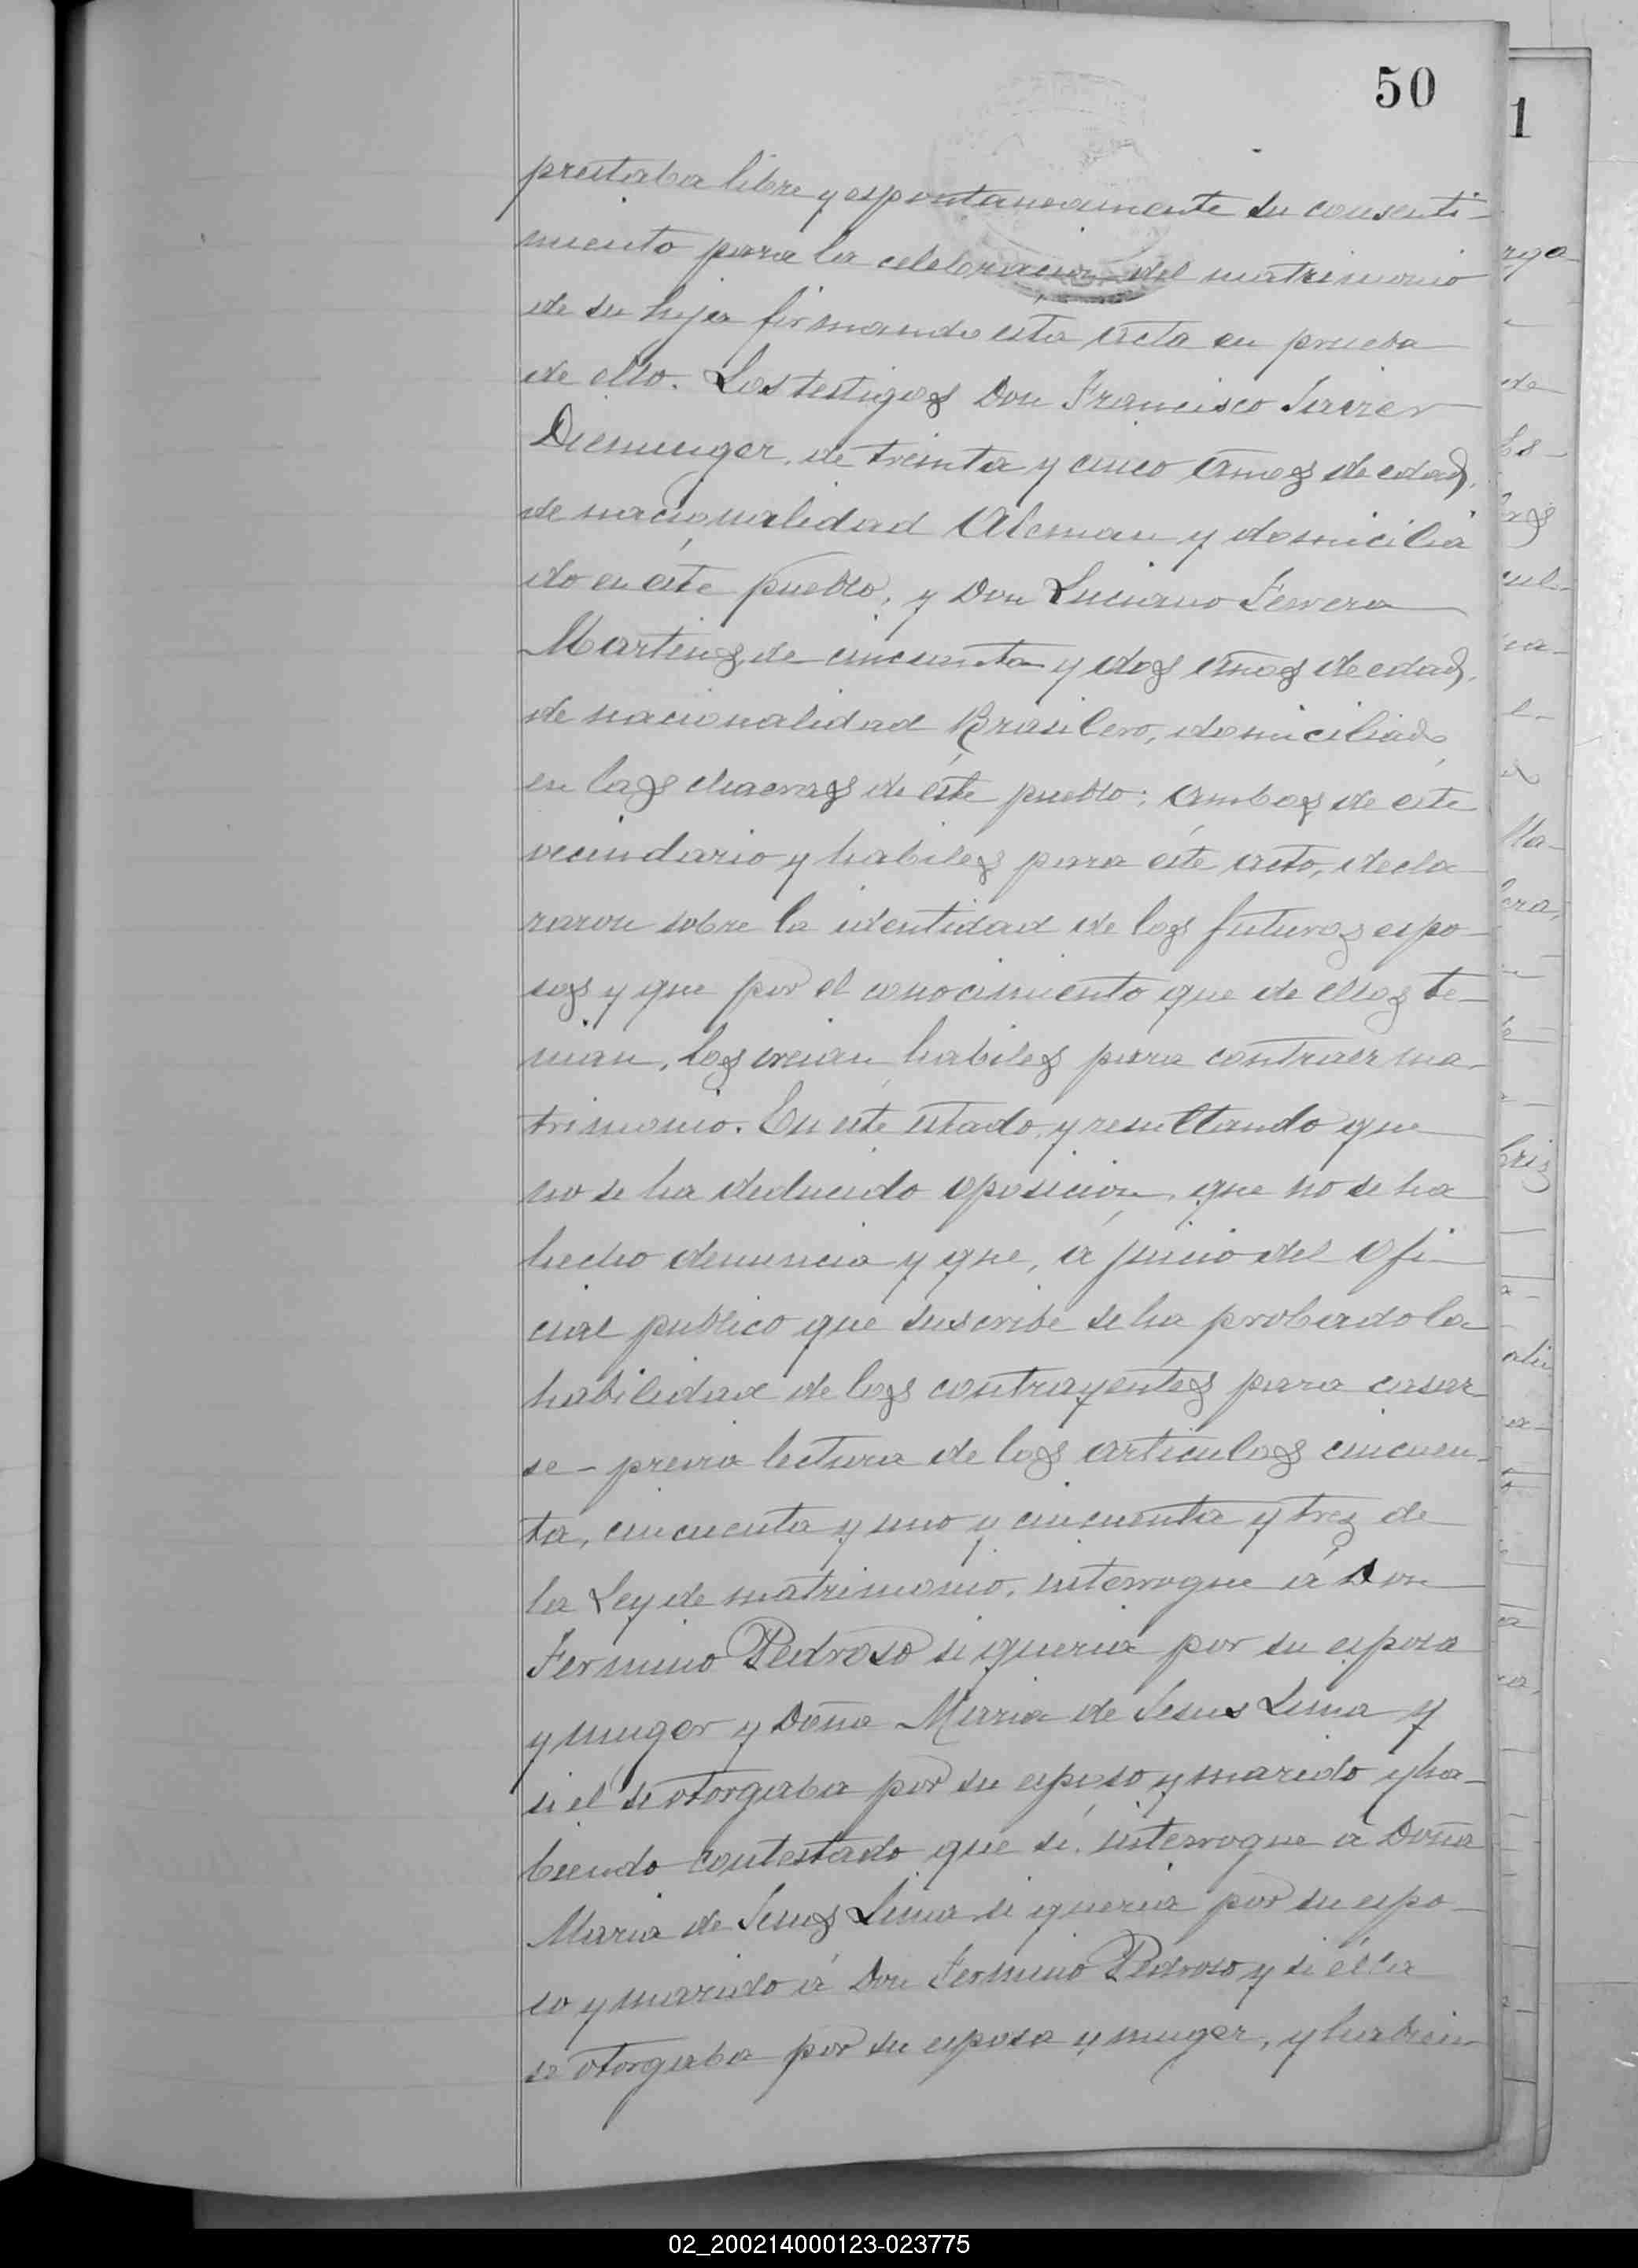 50
1
prestaba libre y espontaneamente su consenti-
miento para la celebracion del matrimonio
de su hija firmando esta acta en prueba
de ello. Los testigos Don Francisco Javier
de treinta y cinco años de edad,
de nacionalidad Aleman y domicilia
do en éste pueblo, y Don Luciano Ferrera
Martins, de cincuenta y dos años de edad,
de nacionalidad Brasilero, domiciliado
en las chacras de éste pueblo; ambos de éste
vecindario y habiles para éste acto, decla
raron sobre la identidad de los futuros espo-
sos y que por el conocimiento que de ellos te-
nian, los creian habiles para contraer ma-
trimonio. En este estado, y resultando que
no se ha deducido oposicion, que no se ha
hecho denuncia y que, á juicio del ofi-
cial publico que suscribe se ha probado la
habilidad de los contrayentes para casar
se - previa lectura de los articulos cincuen-
ta, cincuenta y uno y cincuenta y tres de
la Ley de matrimonio, interrogue á Don
Fermino Pedroso si queria por su esposa
y muger y Doña Maria de Jesus Lima y
si él se otorgaba por su esposo y marido y ha-
biendo contestado que sí, interrogue á Doña
Maria de Jesus Lima si queria por su espo-
so y marido á Don Fermino Pedroso y si élla
se otorgaba por su esposa y muger, y habien
02_200214000123-023775